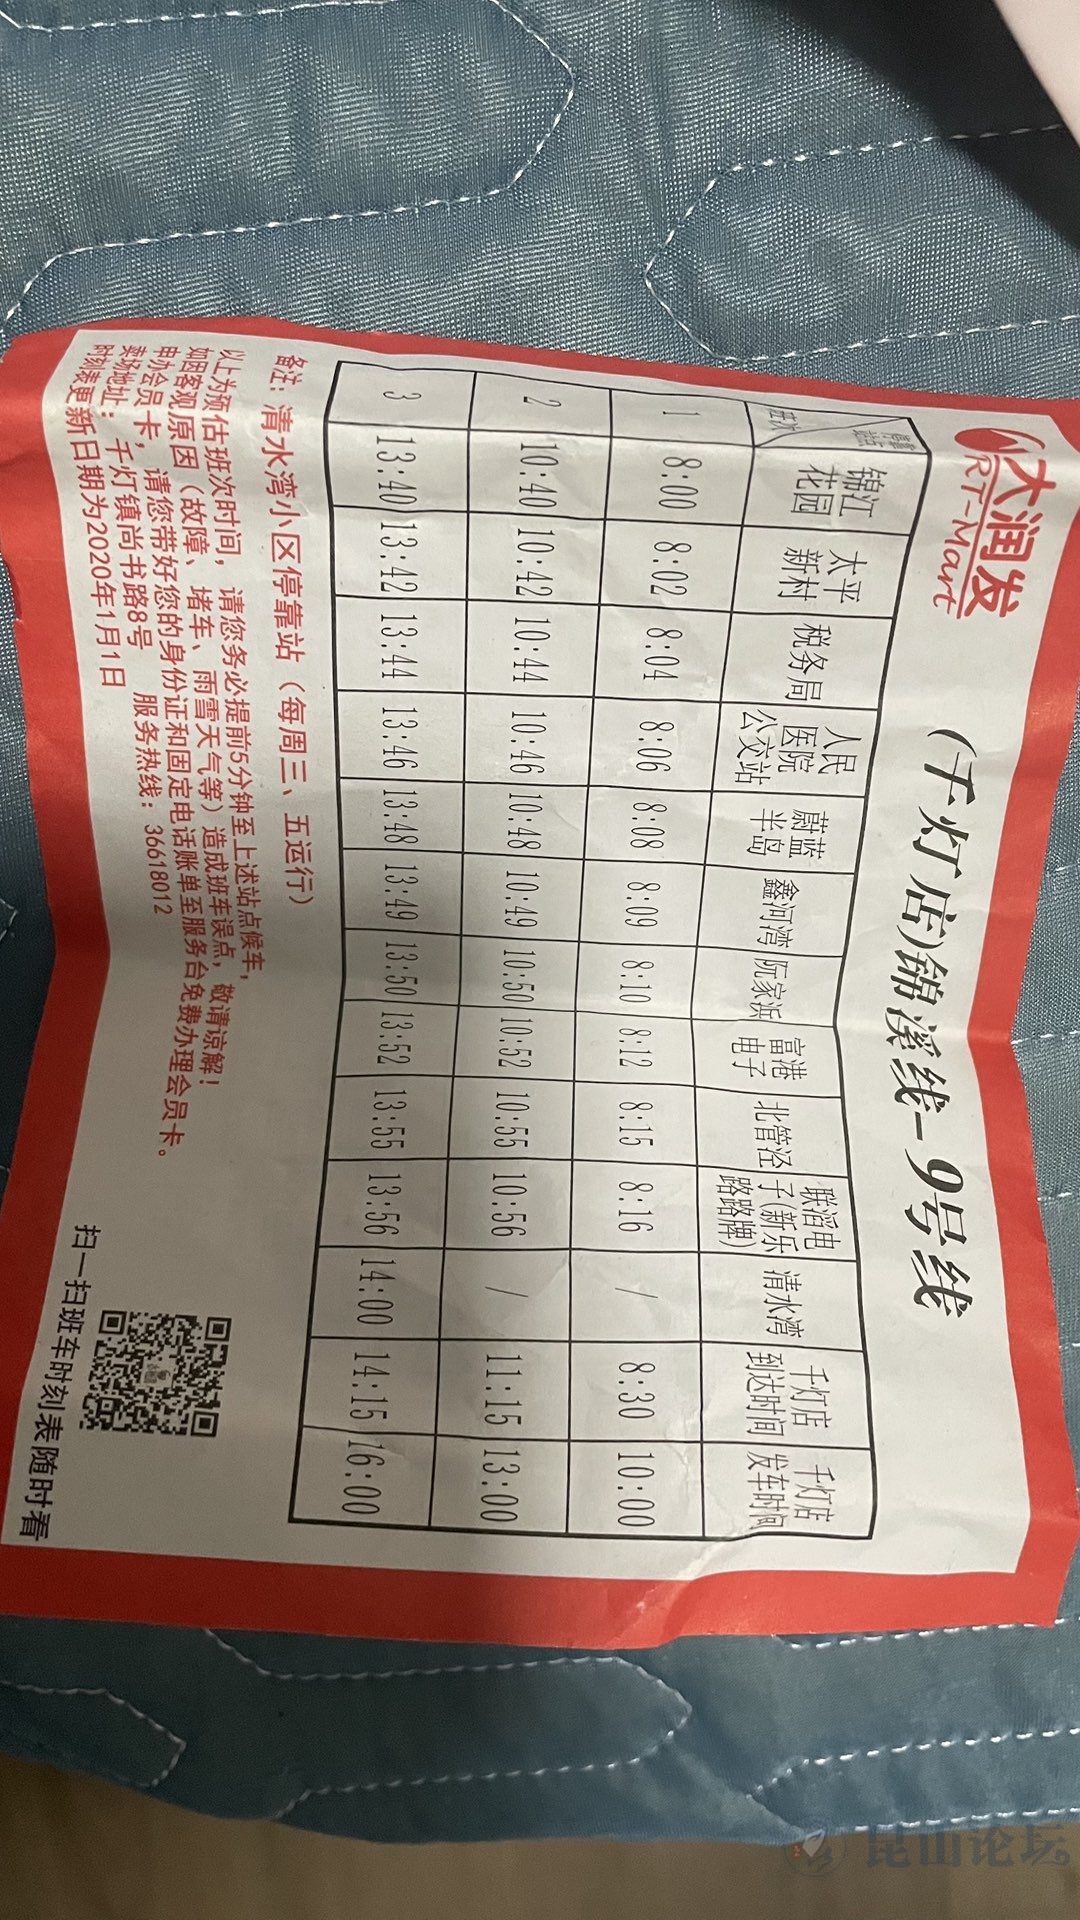 大润发
RT-Mart
(千灯店)锦溪线-9号线
班次 锦江花园 太平新村 税务局 人民医院公交站 蔚蓝半岛 鑫河湾 阮家浜 富港电子 北管泾 联滔电子(新乐路路牌) 清水湾 千灯店到达时间 千灯店发车时间
1 8:00 8:02 8:04 8:06 8:08 8:09 8:10 8:12 8:15 8:16 / 8:30 10:00
2 10:40 10:42 10:44 10:46 10:48 10:49 10:50 10:52 10:55 10:56 / 11:15 13:00
3 13:40 13:42 13:44 13:46 13:48 13:49 13:50 13:52 13:55 13:56 14:00 14:15 16:00
备注：清水湾小区停靠站（每周三、五运行）
以上为预估班次时间，请您务必提前5分钟至上述站点候车，
如因客观原因（故障、堵车、雨雪天气等）造成班车误点，敬请谅解！
申办会员卡，请您带好您的身份证和固定电话账单至服务台免费办理会员卡。
卖场地址：千灯镇尚书路8号 服务热线：36618012
时刻表更新日期为2020年1月1日
扫一扫班车时刻表随时看
昆山论坛